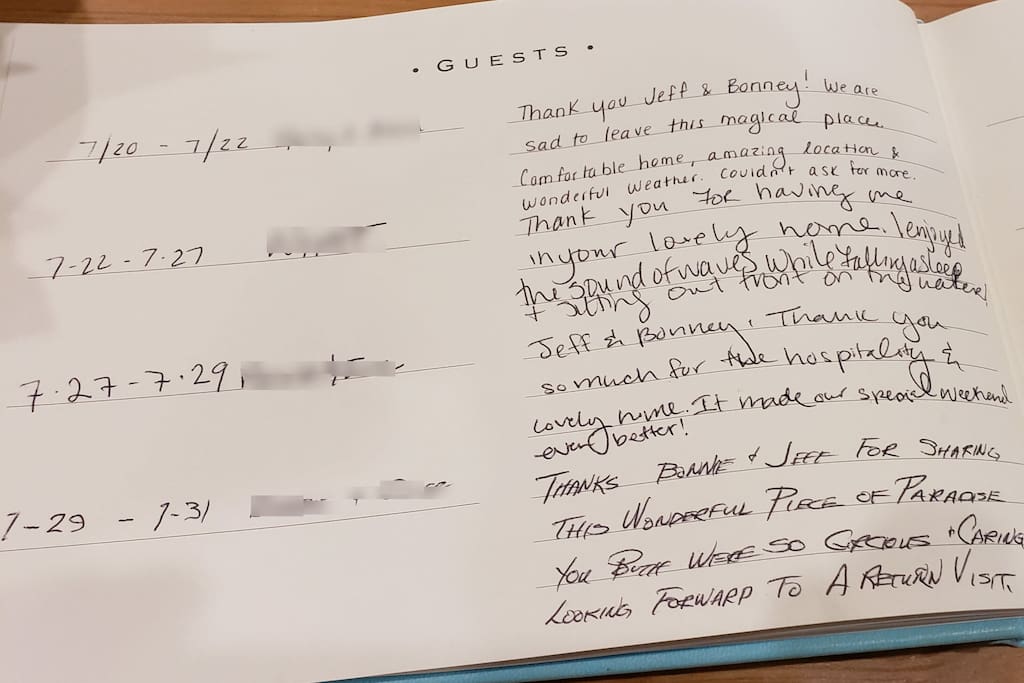 • GUESTS •
7/20 - 7/22
Thank you Jeff & Bonney! We are
sad to leave this magical place.
Comfortable home, amazing location &
wonderful weather. Couldn't ask for more.
7-22 - 7.27
Thank you for having me
in your lovely home. I enjoyed
the sound of waves while falling asleep
+ sitting out front on the water!
7.27 - 7.29
Jeff & Bonney, Thank you
so much for the hospitality &
lovely home. It made our special weekend
even better!
7-29 - 7-31
THANKS BONNIE + JEFF FOR SHARING
THIS WONDERFUL PIECE OF PARADISE
YOU BOTH WERE SO GRCIOUS + CARING
LOOKING FORWARD TO A RETURN VISIT.